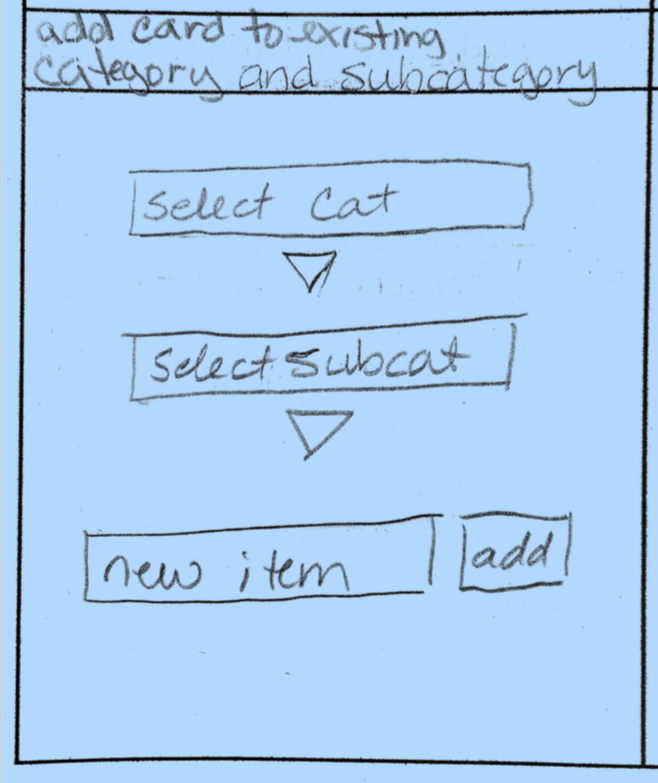 add card to existing
category and subcategory
Select Cat
Select Subcat
new item
add